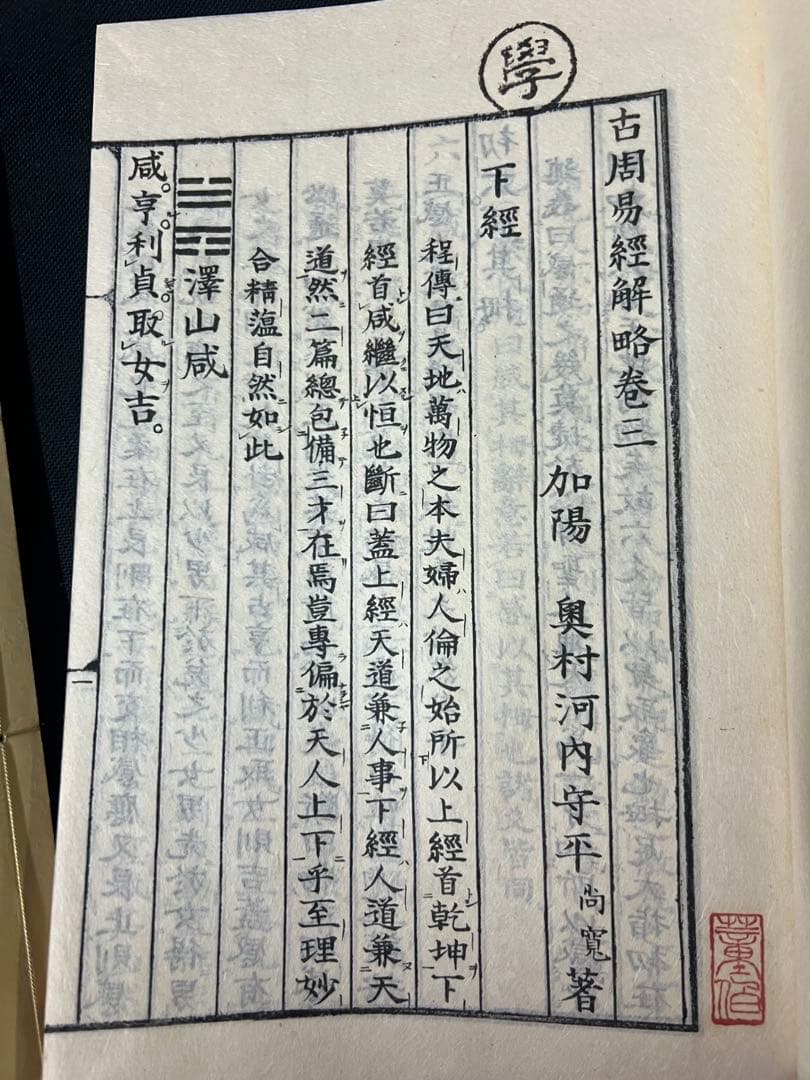 學
古周易經解略卷三
加陽 奧村河內守平尚寬著
下經
程傳曰天地萬物之本夫婦人倫之始所以上經首乾坤下
經首咸繼以恒也斷曰蓋上經天道兼人事下經人道兼天
道然二篇總包備三才在焉豈專偏於天人上下乎至理妙
合精薀自然如此
澤山咸
咸。亨。利貞。取女吉。
一